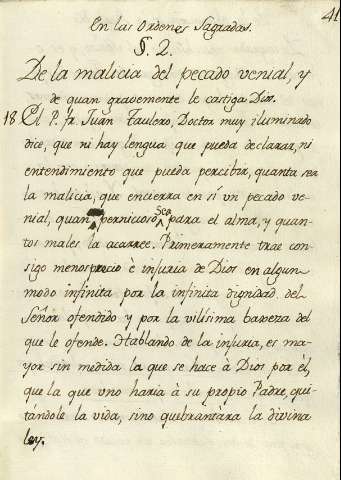 41
En las Ordenes Sagradas.
§. 2.
De la malicia del pecado venial, y
de quan gravemente le castiga Dios.
18 El P. fr. Juan Taulero, Doctor muy iluminado
dice, que ni hay lengua que pueda declarar, ni
entendimiento que pueda percibir, quanta sea
la malicia, que encierra en sí vn pecado ve-
nial, quan pernicioso sea para el alma, y quan-
tos males la acarree. Primeramente trae con-
sigo menosprecio è injuria de Dios en algun
modo infinita por la infinita dignidad del
Señor ofendido y por la vilísima baxeza del
que le ofende. Hablando de la injuria, es ma-
yor sin medida la que se hace à Dios por él,
que la que uno haria à su propio Padre, qui-
tándole la vida, sino quebrantàra la divina
ley.